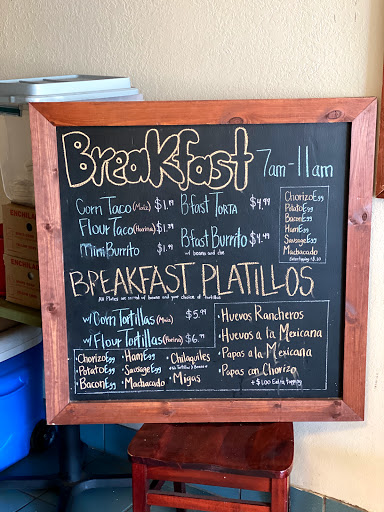 Breakfast 7am-11am
Corn Taco (Maiz) $1.99
Flour Taco (Harina) $1.99
mini Burrito $1.99
Bfast Torta $4.99
Bfast Burrito $4.99
w/ beans and
Chorizo Egg
Potato Egg
Bacon Egg
Ham Egg
Sausage Egg
Machacado
BREAKFAST PLATILLOS
All Plates are served w/ beans and your choice of tortillas
w/ Corn Tortillas (Maiz) $5.99
w/ Flour Tortillas (Harina) $6.99
• Chorizo Egg • Ham Egg • Chilaquiles
• Potato Egg • Sausage Egg
• Bacon Egg • Machacado • Migas
• Huevos Rancheros
• Huevos a la Mexicana
• Papas a la Mexicana
• Papas con Chorizo
+ $1.00 Extra topping